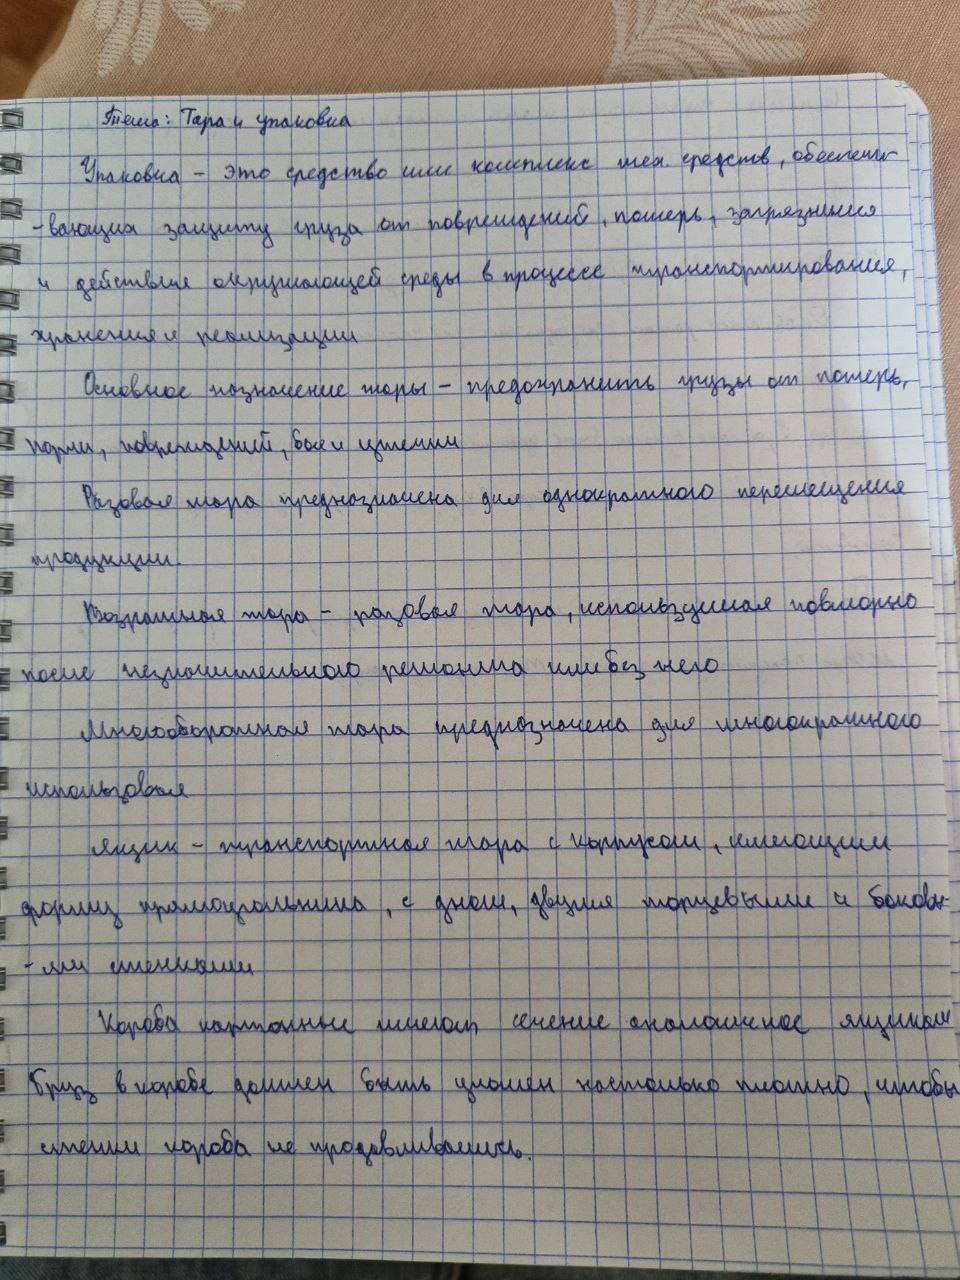 Тема: Тара и упаковка
Упаковка – это средство или комплекс тех. средств, обеспечи-
-вающих защиту груза от повреждений, потерь, загрязнения
и действия окружающей среды в процессе транспортирования,
хранения и реализации
Основное назначение тары – предохранить грузы от потерь,
порчи, повреждений, боя и утечки
Разовая тара предназначена для однократного перемещения
продукции.
Возратная тара – разовая тара, используемая повторно
после незначительного ремонта или без него
Многооборотная тара предназначена для многократного
использовая
Ящик – транспортная тара с корпусом, имеющим
форму прямоугольника, с дном, двумя торцевыми и боковы-
-ми стенками
Короба картонные имеют сечение аналогичное ящикам
Груз в коробе должен быть уложен настолько плотно, чтобы
стенки короба не продавливались.